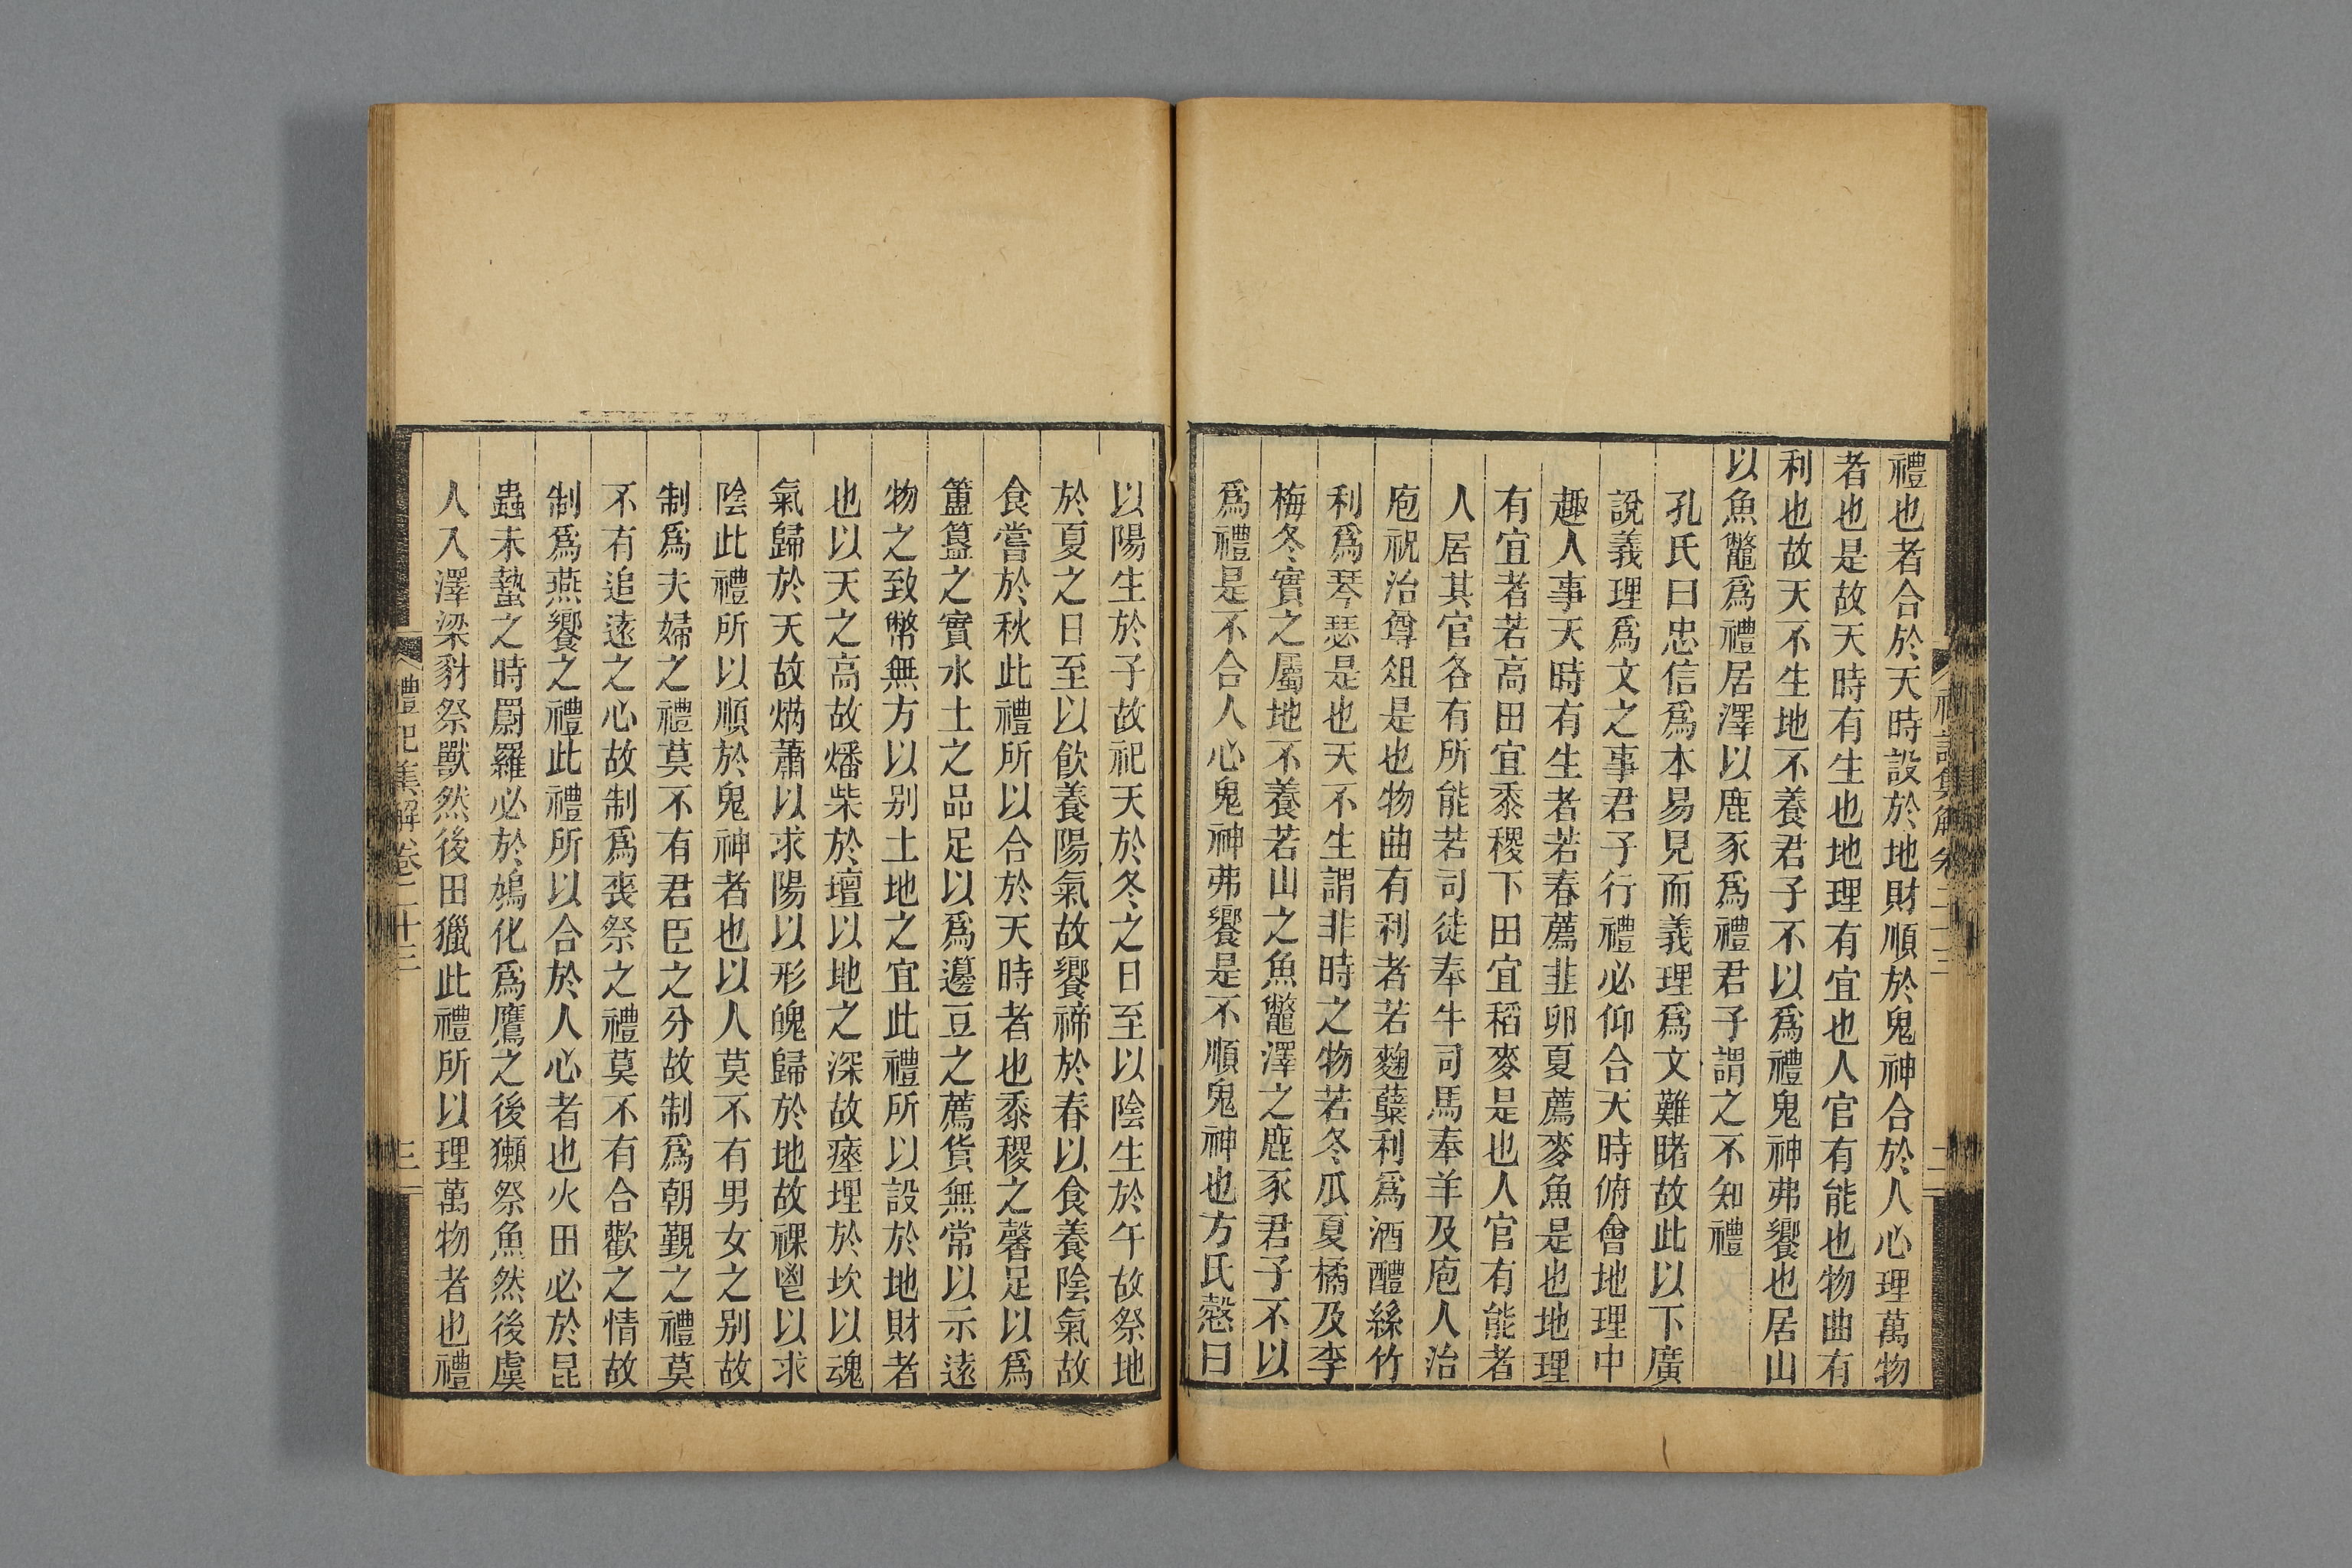 禮也者合於天時設於地財順於鬼神合於人心理萬物
者也是故天時有生也地理有宜也人官有能也物曲有
利也故天不生地不養君子不以爲禮鬼神弗饗也居山
以魚鼈爲禮居澤以鹿豕爲禮君子謂之不知禮
孔氏曰忠信爲本易見而義理爲文難睹故此以下廣
說義理爲文之事君子行禮必仰合天時俯會地理中
趣人事天時有生者若春薦韭卵夏薦麥魚是也地理
有宜者若高田宜黍稷下田宜稻麥是也人官有能者
人居其官各有所能若司徒奉牛司馬奉羊及庖人治
庖祝治尊俎是也物曲有利者若麴糵利爲酒醴絲竹
利爲琴瑟是也天不生謂非時之物若冬瓜夏橘及李
梅冬實之屬地不養若山之魚鼈澤之鹿豕君子不以
爲禮是不合人心鬼神弗饗是不順鬼神也方氏慤曰
以陽生於子故祀天於冬之日至以陰生於午故祭地
於夏之日至以飲養陽氣故饗禘於春以食養陰氣故
食嘗於秋此禮所以合於天時者也黍稷之馨足以爲
簠簋之實水土之品足以爲籩豆之薦貨無常以示遠
物之致幣無方以别土地之宜此禮所以設於地財者
也以天之高故燔柴於壇以地之深故瘞埋於坎以魂
氣歸於天故焫蕭以求陽以形魄歸於地故祼鬯以求
陰此禮所以順於鬼神者也以人莫不有男女之别故
制爲夫婦之禮莫不有君臣之分故制爲朝覲之禮莫
不有追遠之心故制爲喪祭之禮莫不有合歡之情故
制爲燕饗之禮此禮所以合於人心者也火田必於昆
蟲未蟄之時罻羅必於鳩化爲鷹之後獺祭魚然後虞
人入澤梁豺祭獸然後田獵此禮所以理萬物者也禮
禮記集解卷二十三
三